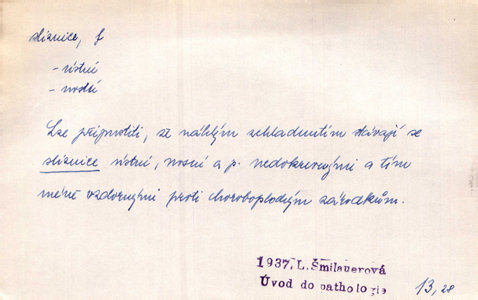 sliznice, f
- ústní
- nosní
Lze připustiti, že náhlým schladnutím stávají se
sliznice ústní, nosní a p. nedokrevnými a tím
méně vzdornými proti choroboplodným zárodkům.
1937, L. Šmilauerová
Úvod do pathologie
13,28